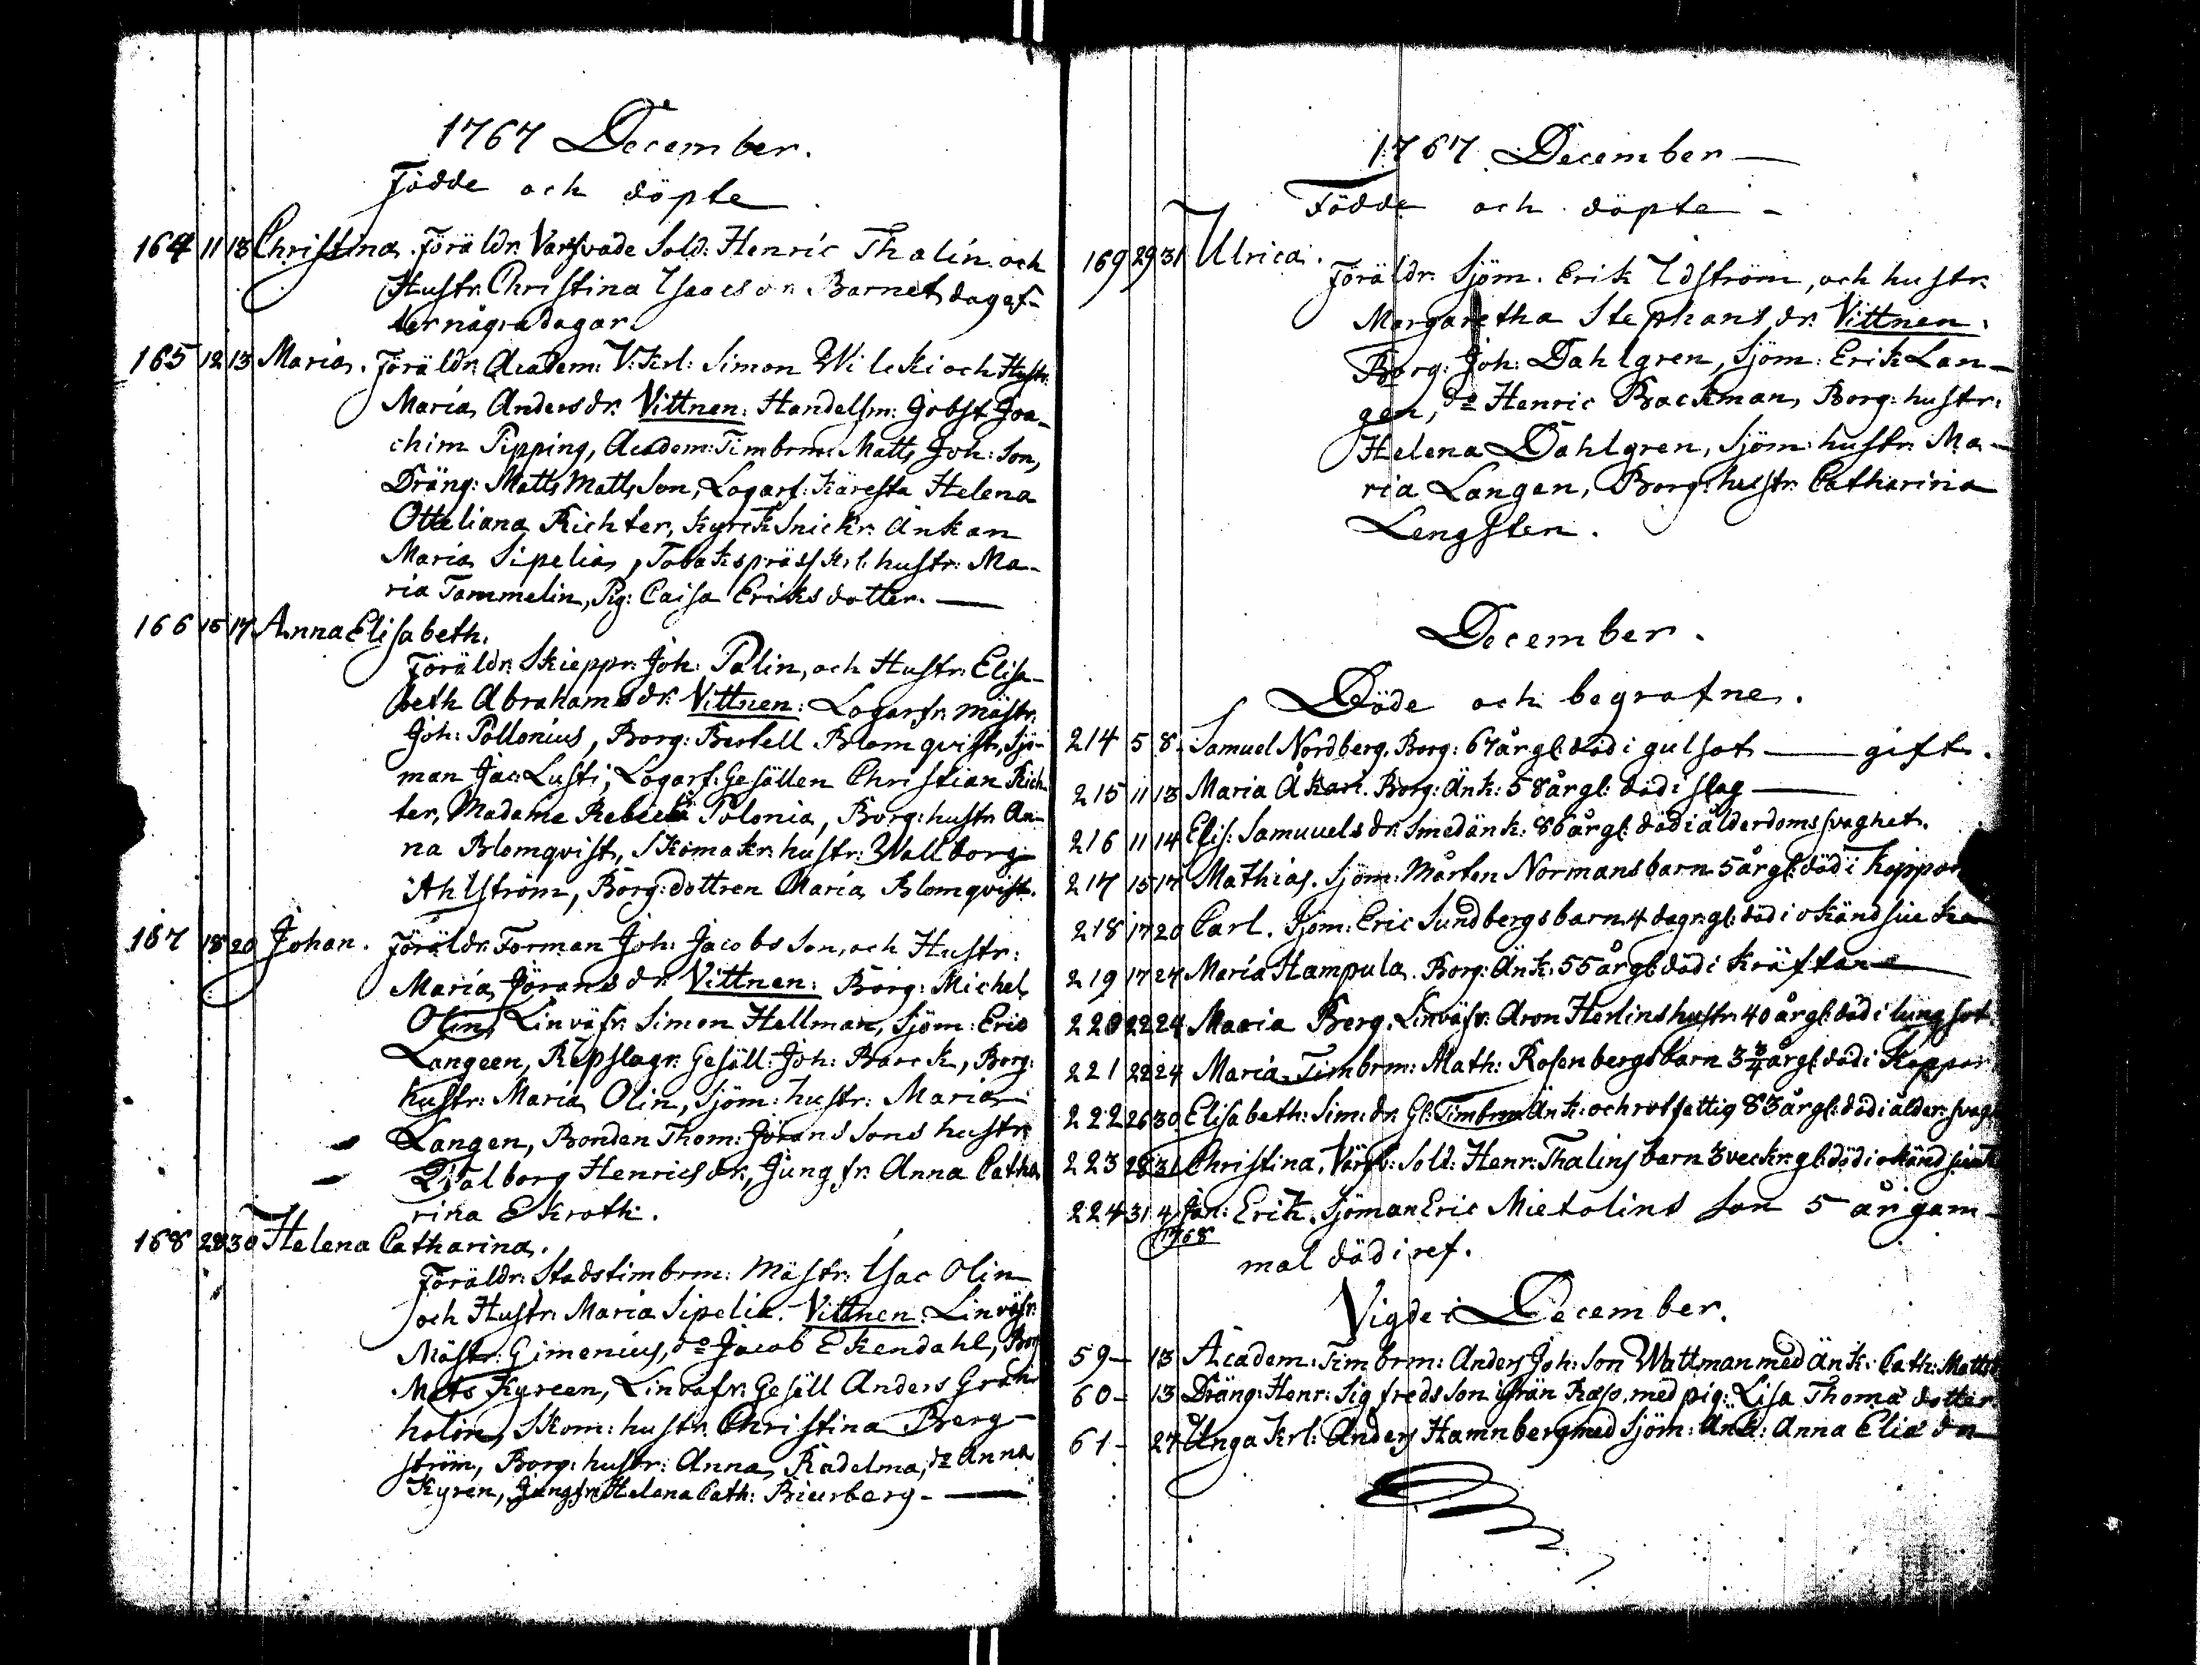 1767 December.
Födde och döpte
164 11 13 Christina. Föräldr. Varfvade Sold: Henric Thalin och
Hustr. Christina Isacsdr. Barnet dog ef-
ter några dagar.
165 12 13 Maria. Föräldr. Academ: V. Krl: Simon Wileki och Hustr.
Maria Andersdr. Vittnen: Handelsm: Jobst Joa-
chim Pipping, Academ: Timbrm. Matts Joh: Son,
Dräng: Matts Matts Son, Logarf: Käresta Helena
Otteliana Richter, Kyrck Snickr. Änkan
Maria Sipelia, Tobakspräss Krl. hustr: Ma-
ria Tammelin, Pig: Caisa Eriksdotter.
166 15 17 Anna Elisabeth.
Föräldr. Skieppr. Joh: Palin, och Hustr. Elisa-
beth Abrahamsdr. Vittnen: Logarfr. mästr.
Joh: Pollonius, Borg: Bertell Blomqvist, Sjö-
man Jac: Lusti, Logarf: Gesällen Christian Rich-
ter, Madame Rebecka Polonia, Borg: hustr. An-
na Blomqvist, Skomakr. hustr: Wallborg
Ahlström, Borg: dottren Maria Blomqvist.
167 18 20 Johan. Föräldr. Forman Joh: Jacobs Son, och Hustr:
Maria Jöransdr. Vittnen: Borg: Michel
Olin, Linväfr. Simon Hellman, Sjöm: Eric
Langeen, Repslagr. Gesäll: Joh: Barck, Borg:
hustr: Maria Olin, Sjöm: hustr: Maria
Langen, Bonden Thom: Jörans Sons hustr.
Walborg Henricsdr., Jungfr. Anna Catha-
rina Ekroth.
168 28 30 Helena Catharina.
Föräldr. Stadstimbrm: Mästr: Isac Olin
och Hustr. Maria Sipelia. Vittnen: Linväfr.
Mästr: Gimenius, do Jacob Ekendahl, Borg
Mats Kyreen, Linväfr. Gesäll Anders Grön-
holm, Skom: hustr. Christina Berg-
ström, Borg: hustr: Anna Radelma, do Anna
Kyren, Jungfr. Helena Cath: Biurberg.
1767 December
Födde och döpte
169 29 31 Ulrica.
Föräldr. Sjöm. Erik Idström, och hustr.
Margaretha Stephansdr. Vittnen.
Borg: Joh: Dahlgren, Sjöm: Erik Lan-
gen, do Henric Backman, Borg: hustr:
Helena Dahlgren, Sjöm: hustr. Ma-
ria Langen, Borg: hustr. Catharina
Lengsten.
December.
Döde och begrafne.
214 5 8 Samuel Nordberg. Borg: 67 år gl: död i gulsot gift.
215 11 13 Maria Åkart. Borg: Änk: 58 år gl: död i slag
216 11 14 Elis: Samuuelsdr. Smedänk: 86 år gl: död i ålderdoms svaghet.
217 15 17 Mathias. Sjöm: Mårten Normans barn 5 år gl: död i Koppor
218 17 20 Carl. Sjöm: Eric Sundbergs barn 4 dagr. gl: död i okänd siucka
219 17 24 Maria Hampula. Borg: Änk: 55 år gl: död i kräftan
220 22 24 Maria Berg. Linväfr: Aron Herlins hustr. 40 år gl: död i lungsot.
221 22 24 Maria Timbrm: Math: Rosenbergs barn 3 3/4 år gl: död i Koppor
222 26 30 Elisabeth: Sim: dr. Gl: Timbrm Änk: och rotfattig 83 år gl: död i ålder: svagh
223 28 31 Christina, Värfv: Sold: Henr: Thalins barn 3 veckr. gl: död i okänd siuck
224 31 4 Jan: Erik. Sjöman Eric Mietolins Son 5 år gam-
1768 mal död i ref.
Vigde i December.
59 — 13 Academ: Timbrm: Anders Joh: Son Wattman med Änk: Cath: Matts
60 — 13 Dräng: Henr: Sigfreds Son ifrån Raso med pig: Lisa Thoma dotter
61 — 27 Unga Krl: Anders Hamnberg med Sjöm: Änk: Anna Elia dr